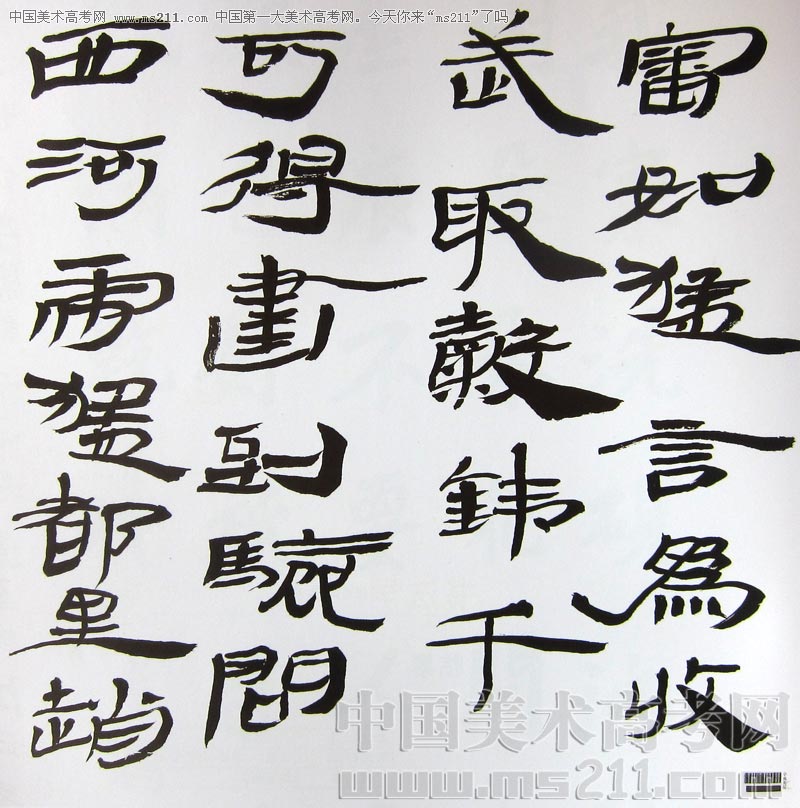 中国美术高考网 www.ms211.com 中国第一大美术高考网。今天你来“ms211”了吗
審如猛言為收
武取穀鉼千
可得畫到驤問
西河需猛都里趙
中国美术高考网
www.ms211.com